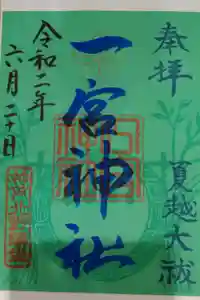 奉拝
夏越大祓
一宮神社
令和二年
六月二十日